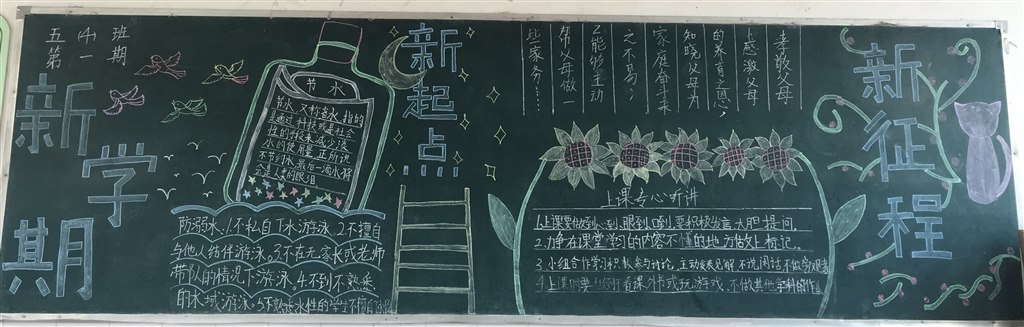 五(4)班
第一期
新学期
节水
节水,又称省水,指的
是通过科技或是社会
性的手段来减少淡
水的使用量,正所说
不节约水,最后一滴水将
会是人类的眼泪
防溺水、1.不私自下水游泳、2.不擅自
与他人结伴游泳。3.不在无家长或老师
带队的情况下游泳、4.不到不熟悉
的水域游泳、5.不熟悉水性的学生不擅自
新起点
孝敬父母
上感激父母
的养育之恩,
知晓父母为
家庭奋斗来
之不易;
2.能够主动
帮父母做一
些家务……
上课专心听讲
1.上课要做到心到、眼到、口到,要积极发言、大胆提问
2.力争在课堂学习的内容不懂的地方做上标记。
3.小组合作学习积极参与讨论,主动发表见解不说闲话不做旁观者
4.上课时要看课外书或玩游戏,不做其他学科的作业
新征程